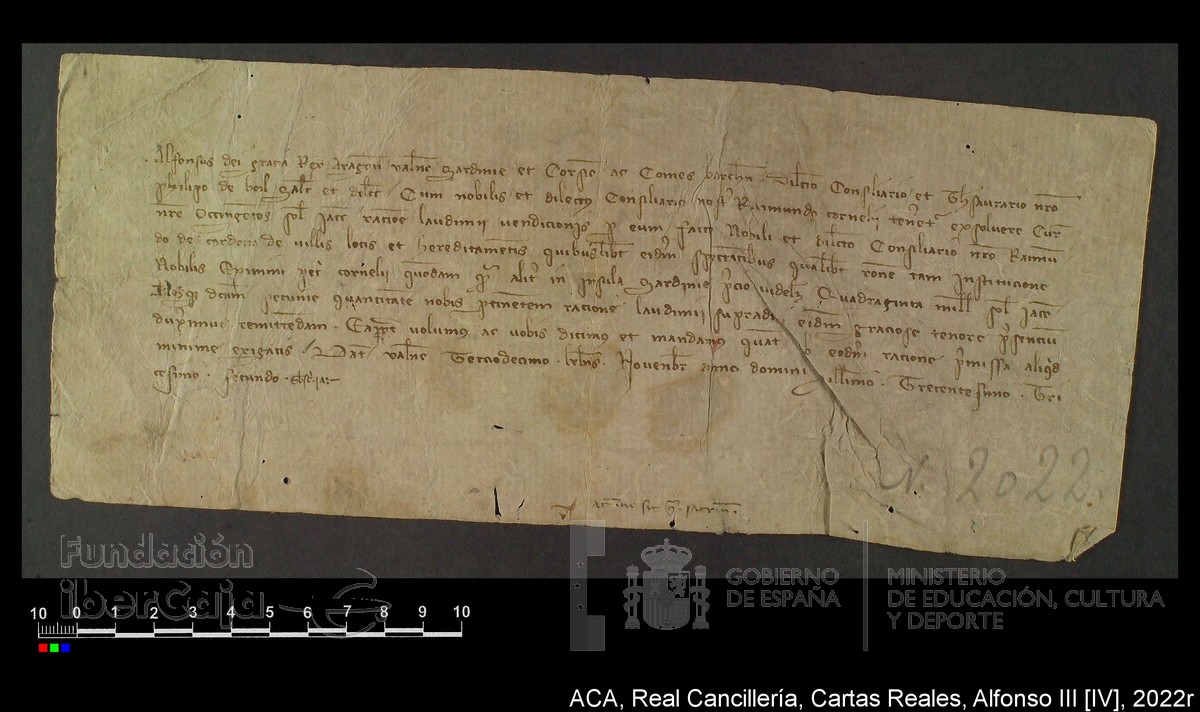 Alfonsus dei gracia Rex Aragon Valenc Sardinie et Corsice ac Comes barchn. Dilecto Consiliario et Thesaurario nro
Philipo de boil Salt et dilect. Cum nobilis et dilectus Consiliarius noster Raimundus cornelii tenet exsolvere Cur
nre Occingetos sol Iacc racione laudimii vendicionis per eum facte Nobili et dilecto Consiliario nro Raimu
do de cardona de villis locis et hereditametis quibuslibet eidm spectantibus qualibet rone tam Institucione
Nobilis Eximini petri cornelii quondam qm alit in Insula Sardinie precio videlz Quadraginta mill sol Iacc
Nosq dcam peccunie quantitatem nobis ptinetem racione laudimii supradi eidem graciose tenore psenciu
duximus remittedam. Eapropt volumus ac vobis dicimus et mandamus quat ab eodm racione pmissa aliqd
minime exigatis. Dat Valenc Terciodecimo klends Novembr anno domini Millimo Trecentesimo Tri
cesimo secundo
N. 2022.
Fundación
iberCaja
10 0 1 2 3 4 5 6 7 8 9 10
GOBIERNO
DE ESPAÑA
MINISTERIO
DE EDUCACIÓN, CULTURA
Y DEPORTE
ACA, Real Cancillería, Cartas Reales, Alfonso III [IV], 2022r